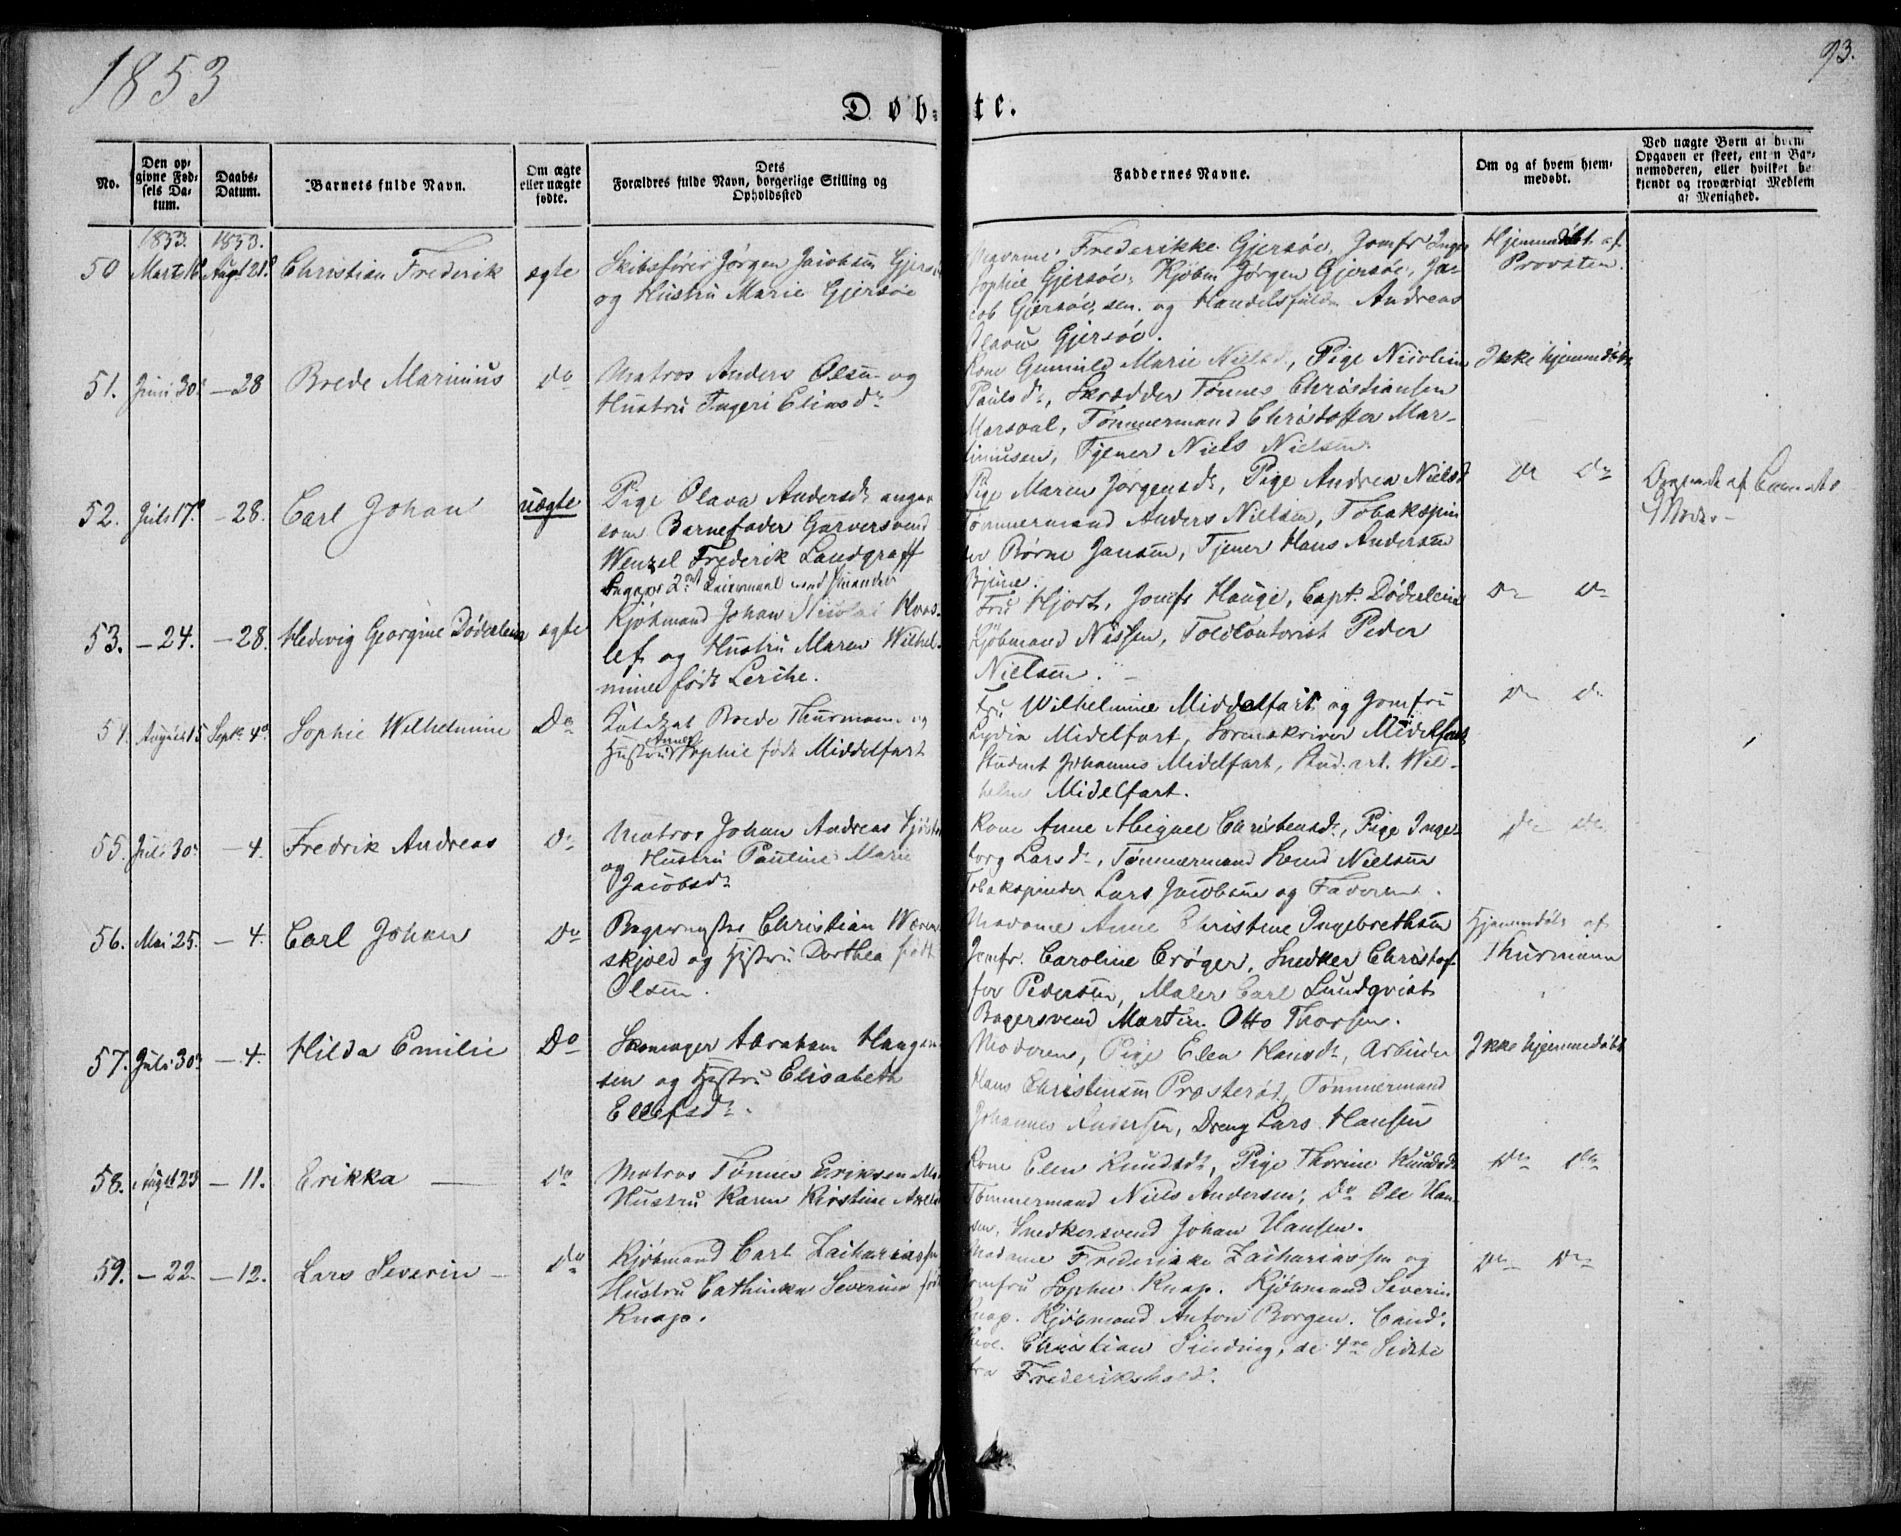 1853
93.
Døb-te.
No.
Den op-
givne Fød-
sels Da-
tum.
Daabs-
Datum.
Barnets fulde Navn.
Om ægte
eller uægte
fødte.
Dets
Forældres fulde Navn, borgerlige Stilling og
Opholdssted
Faddernes Navne.
Om og af hvem hjem-
medøbt.
Ved uægte Børn at hvem
Opgaven er skeet, enten Bar-
nemoderen, eller hvilket be-
kjendt og troværdigt Medlem
af Menighed.
1853. 1853.
50 Marts Augt 21 Christian Frederik ægte
Skibsfører Jørgen Jacobsen Gjersøe
og Hustru Marie Gjersøe
Madame Frederikke Gjersøe, Jomfr Inger
Sophie Gjersøe, Kjøbm Jørgen Gjersøe, Ja-
cob Gjersøe, sen. og Handelsfuldm Andreas
Olaus Gjersøe.
Hjemmedøbt af
Provsten.
51. Juni 30 - 28 Brede Marinius Do
Matros Anders Olsen og
Hustru Ingeri Eliasd
Kone Gunnild Marie Nielsd, Pige Nicoline
Paulsd, Skrædder Tønnes Christiansen
Marsval, Tømmermand Christoffer Mar-
tiniusen, Tjener Niels Nielsen.
Ikke hjemmedøbt
52. Juli 17 - 28. Carl Johan uægte
Pige Olava Andersd angav
som Barnefader Garversvend
Wenzel Frederik Landgraff
2det Leiermaal
Pige Maren Jørgensd, Pige Andrea Nielsd
Tømmermand Anders Nielsen, Tobakspin
der Børne Jansen, Tjener Hans Andersen
Bjune.
Do Do
af
Moder
53. - 24. - 28. Hedevig Georgine Døderlein ægte
Kjøbmand Johan Nicolai Hvos-
lef og Hustru Maren Wilhel-
mine født Lerche.
Fru Hjort, Jomfr Hauge, Capt. Døderlein
Kjøbmand Nissen, Toldcontorist Peder
Nielsen.
Do Do
54. August 15 Sept. 4 Sophie Wilhelmine Do
Brede Thurmann og
Hustru Anne Sophie født Middelfart
Fru Wilhelmine Middelfart og Jomfru
Lydia Midelfart, Sorenskriver Midelfart
Student Johannes Midelfart, Stud. art. Wil-
helm Midelfart.
Do Do
55. Juli 30 - 4. Fredrik Andreas Do
Matros Johan Andreas
og Hustru Pauline Marie
Jacobsd
Kone Anne Abigael Christensd, Pige Inge-
borg Larsd, Tømmermand Svend Nielsen
Tobakspinder Lars Jacobsen og Faderen.
Do Do
56. Mai 25. - 4. Carl Johan Do
Bagermester Christian Wæren-
skjold og Hustru Dorthea født
Olsen.
Madame Anne Christine Ingebrethsen
Jomfr. Caroline Crøger, Snedker Christof-
fer Pedersen, Maler Carl Lundqvist
Bagersvend Martin Otto Thorsen.
Hjemmedøbt af
Thurmann
57. Juli 30 - 4. Hilda Emilie Do
Skomager Abraham Haagen-
sen og Hustru Elisabeth
Ellefsd.
Moderen, Pige Elen Hansd, Arbeider
Hans Christensen Prosterød, Tømmermand
Johannes Andersen, Dreng Lars Hansen
Ikke hjemmedøbt
58. Augt 23 - 11. Erikka — Do
Matros Tønnes Eriksen
Hustru Karen Kirstine
Kone Elen Knudsd, Pige Thorine Knudsd
Tømmermand Niels Andersen, Do Ole Han-
sen, Snedkersvend Johan Hansen.
Do Do
59. - 22. - 12. Lars Severin — Do
Kjøbmand Carl Zachariassen
Hustru Cathinka Severine født
Knap.
Madame Frederikke Zachariassen og
Jomfru Sophie Knap. Kjøbmand Severin
Knap. Kjøbmand Anton Borgen. Cand.
theol. Christian Sinding, de 4re Sidste
fra Frederikshald.
Do Do